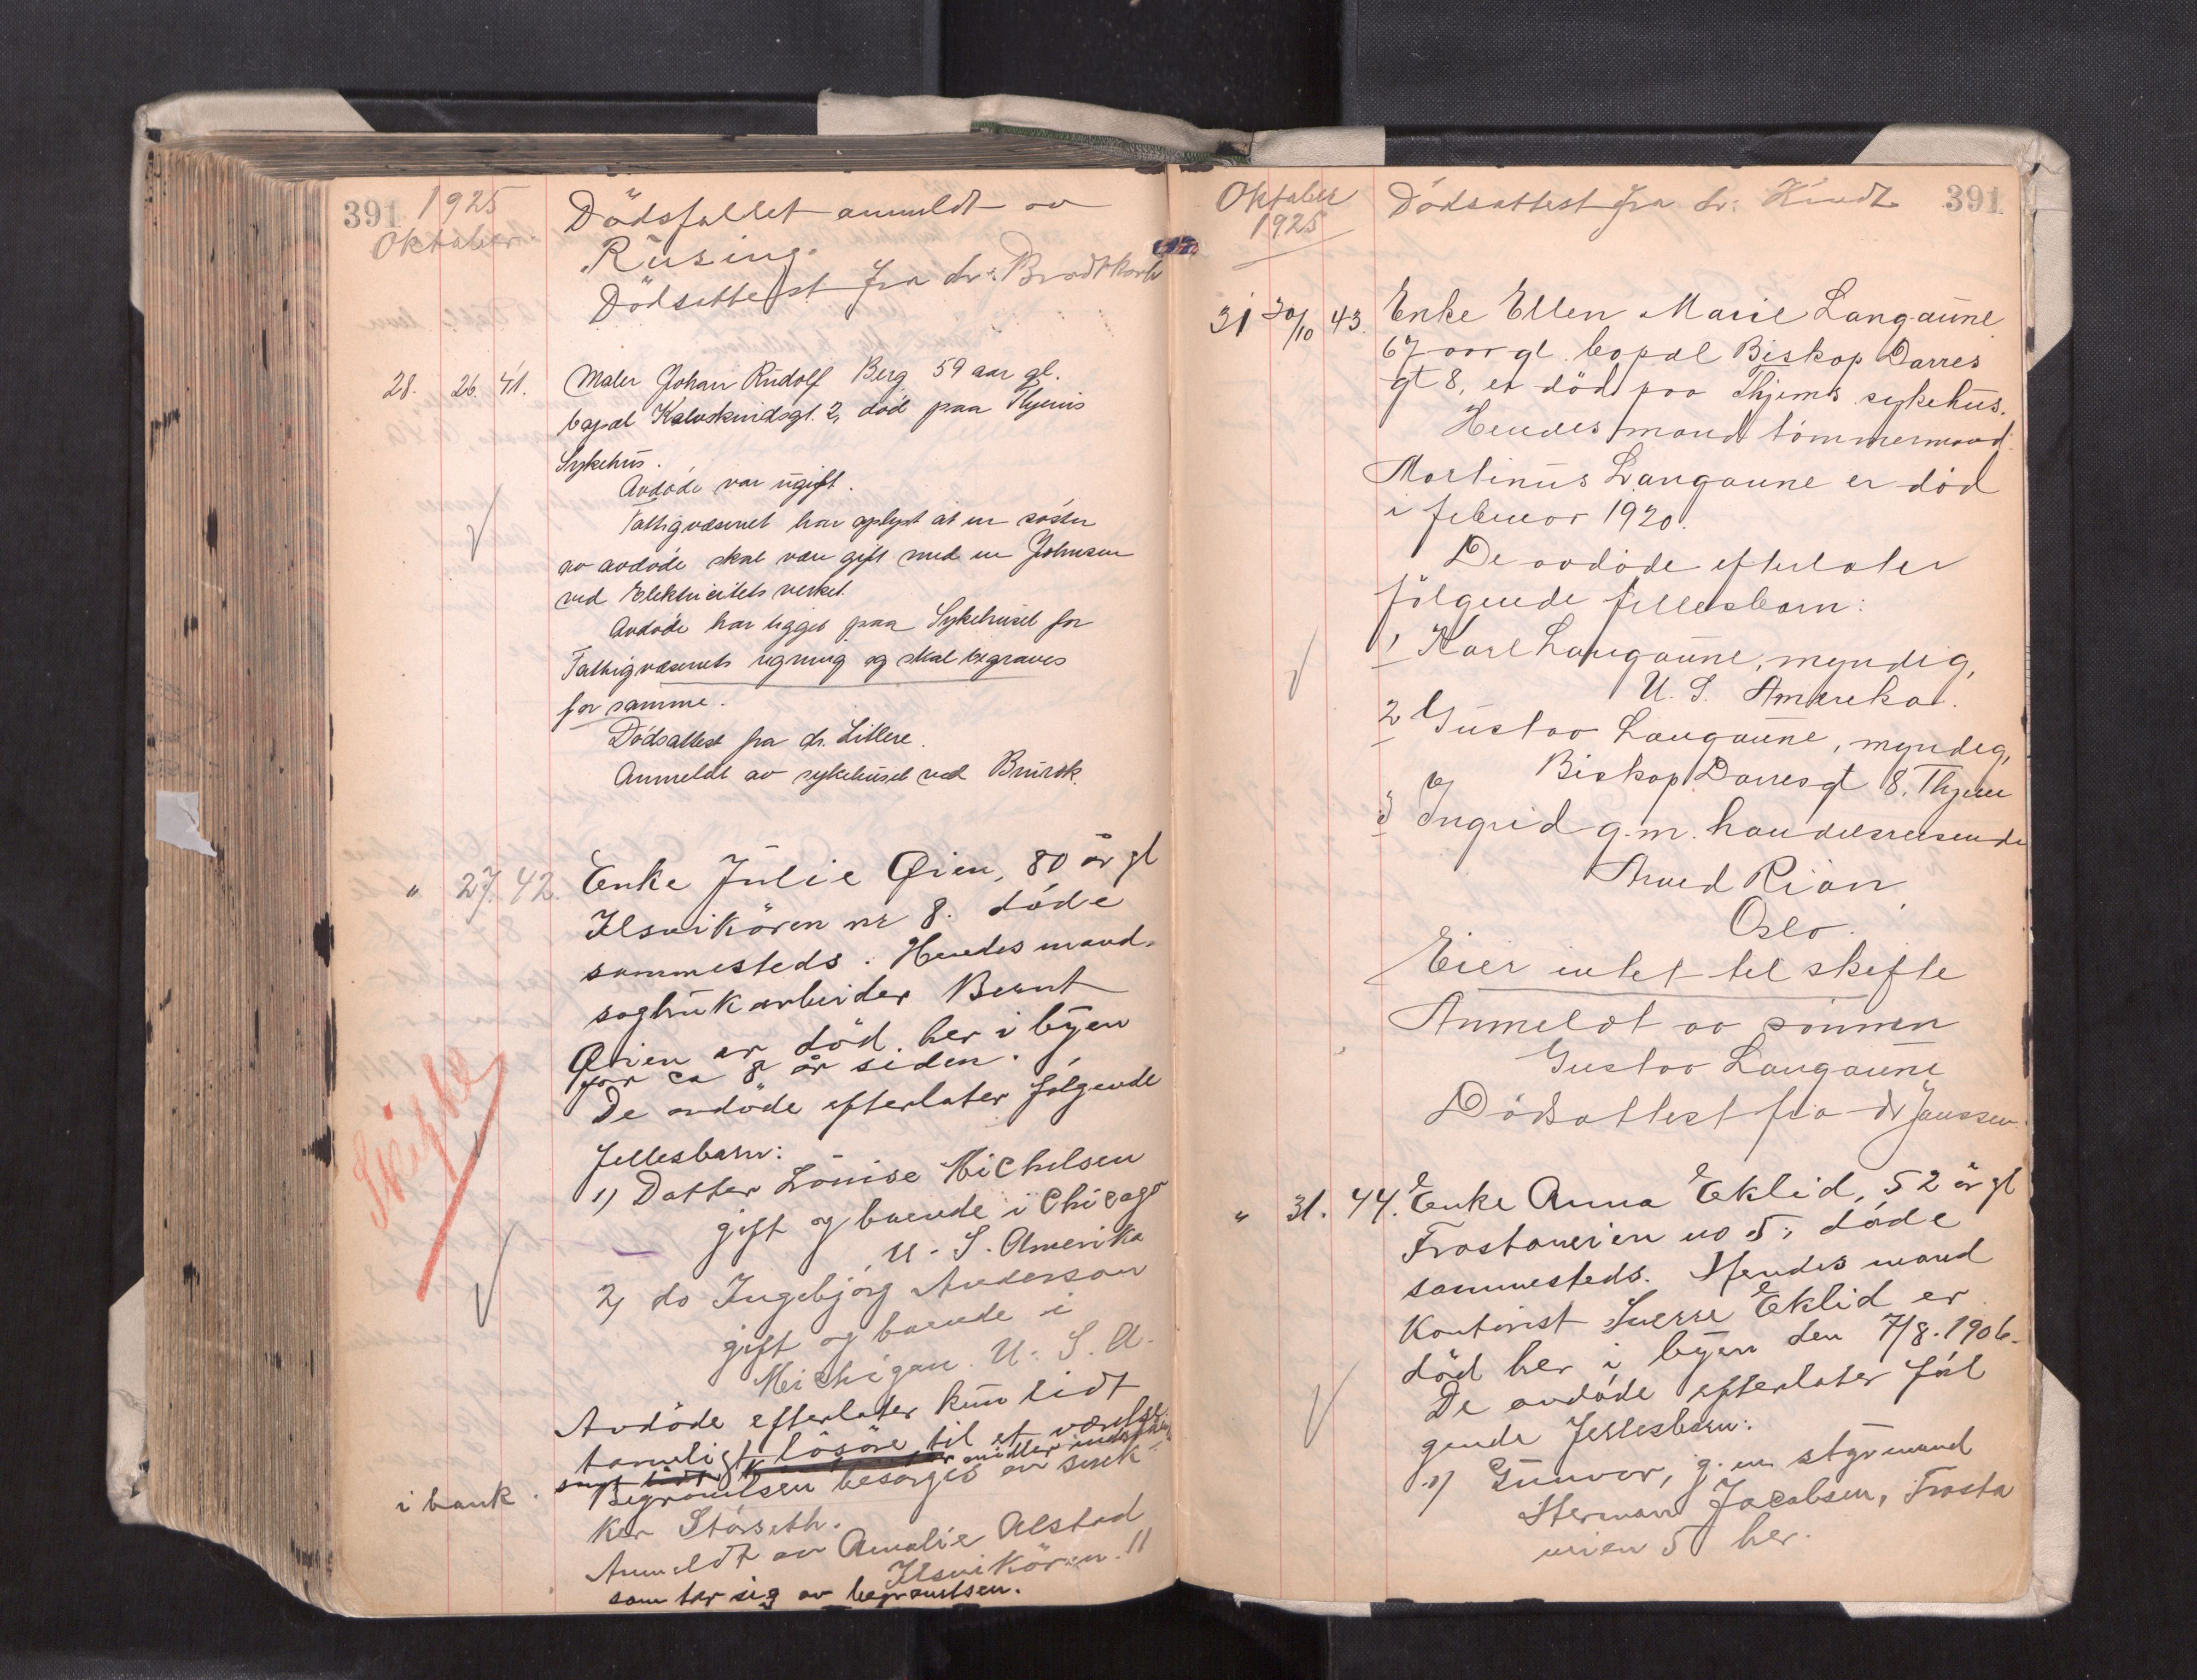 391 1925
Oktober
Dödsfallet anmeldt av
Rüsing.
Dödsattest fra dr: Brodtkorb
28. 26. 41. Maler Johan Rudolf Berg 59 aar gl.
bopæl Kalvskindsgt. 2, död paa Thjems
Sykehus.
Avdöde var ugift.
Fattigvæsenet har oplyst at en söster
av avdöde skal være gift med en Johnsen
ved Elektricitetsverket.
Avdöde har ligget paa Sykehuset for
Fattigvæsenets regning og skal begraves
for samme.
Dödsattest fra dr. Lillere.
Anmeldt av sykehuset ved
" 27. 42. Enke Julie Øien, 80 år gl
Ilsvikören nr 8. döde
sammesteds. Hendes mand
sagbruk arbeider Bernt
Øien er död her i byen
for ca 8 år siden.
De avdöde efterlater fölgende
fellesbarn:
1) Datter Louise Michelsen
gift og boende i Chicago
U. S. Amerika
2) do Ingebjörg Anderson
gift og boende i
Michigan. U. S. A.
Skifte
Avdöde efterlater kun lidt
tarveligt lösöre til et værelse
samt lidt midler indest
i bank.
Begravelsen besörges av snek
ker Störseth.
Anmeldt av Amalie Alstad
Ilsvikören 11
som tar sig av begravelsen.
Oktober
1925
391
Dödsattest fra dr: Kindt
31 30/10 43. Enke Ellen Marie Langaune
67 aar gl. bopæl Biskop Darres
gt 8, er död paa Thjems sykehus.
Hendes mand tömmermand
Martinus Langaune er död
i februar 1920.
De avdöde efterlater
fölgende fellesbarn:
1 Karl Langaune, myndig,
U. S. Amerika.
2 Gustav Langaune, myndig,
Biskop Darresgt 8. Thjem
3 Ingrid g. m. handelsreisende
Arved Rian
Oslo.
Eier intet til skifte
Anmeldt av sönnen
Gustav Langaune
Dödsattest fra dr Janssen.
" 31. 44. Enke Anna Eklid, 52 år gl
Frostaveien no 5, döde
sammesteds. Hendes mand
Kontorist Sverre Eklid er
död her i byen den 7/8. 1906.
De avdöde efterlater föl
gende fellesbarn:
1) Gunvor, g. m. styrmand
Herman Jacobsen, Frosta
veien 5 her.